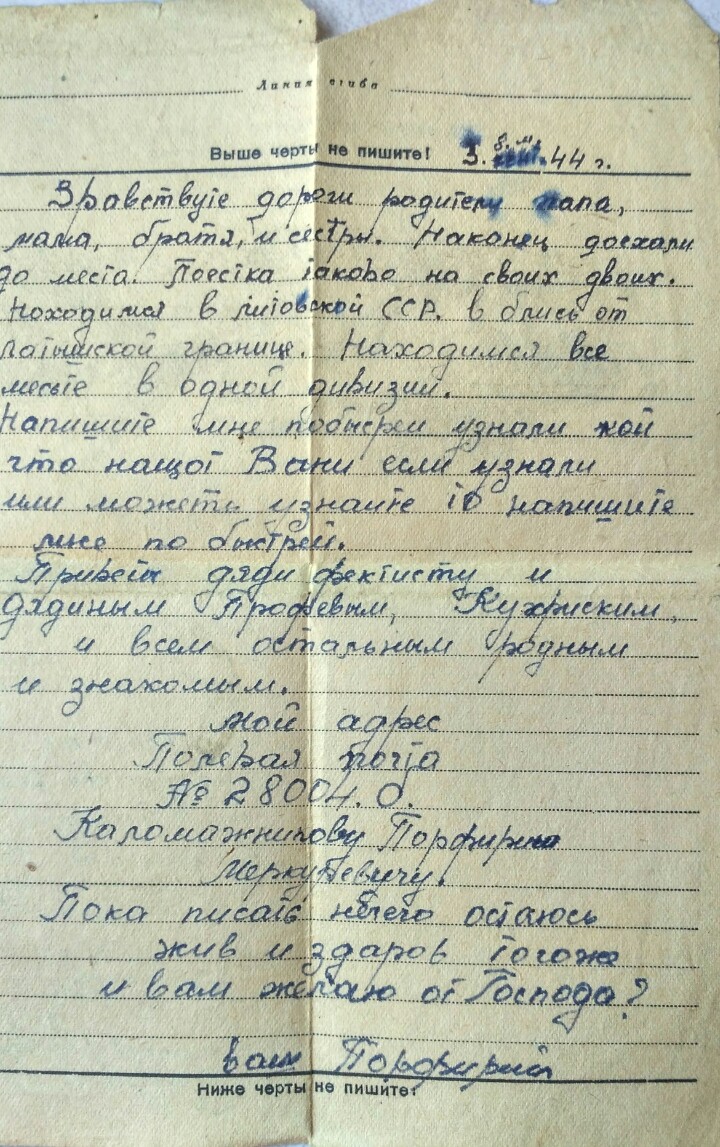 Линия сгиба
Выше черты не пишите! 3. 8. м. 44 г.
Зравствуйте дороги родители папа,
мама, братя, и сестры. Наконец доехали
до места. Поестка таково на своих двоих.
Находимся в литовской ССР. в блись от
латышской границе. Находимся все
месьте в одной дивизии.
Напишите мне побыстреи узнали
что нащот Вани если узнали
или можеть узнаите то напишите
мне по быстрей.
Приветь дяди фектисту и
дядиным
и всем остальным родным
и знакомым.
мой адрес
Полевая почта
№ 28004. О.
Каломажникову Порфирию
Меркулевичу.
Пока писать нечего остаюсь
жив и здаров тогоже
и вам желаю от Господа?
ваш Порфирий
Ниже черты не пишите!